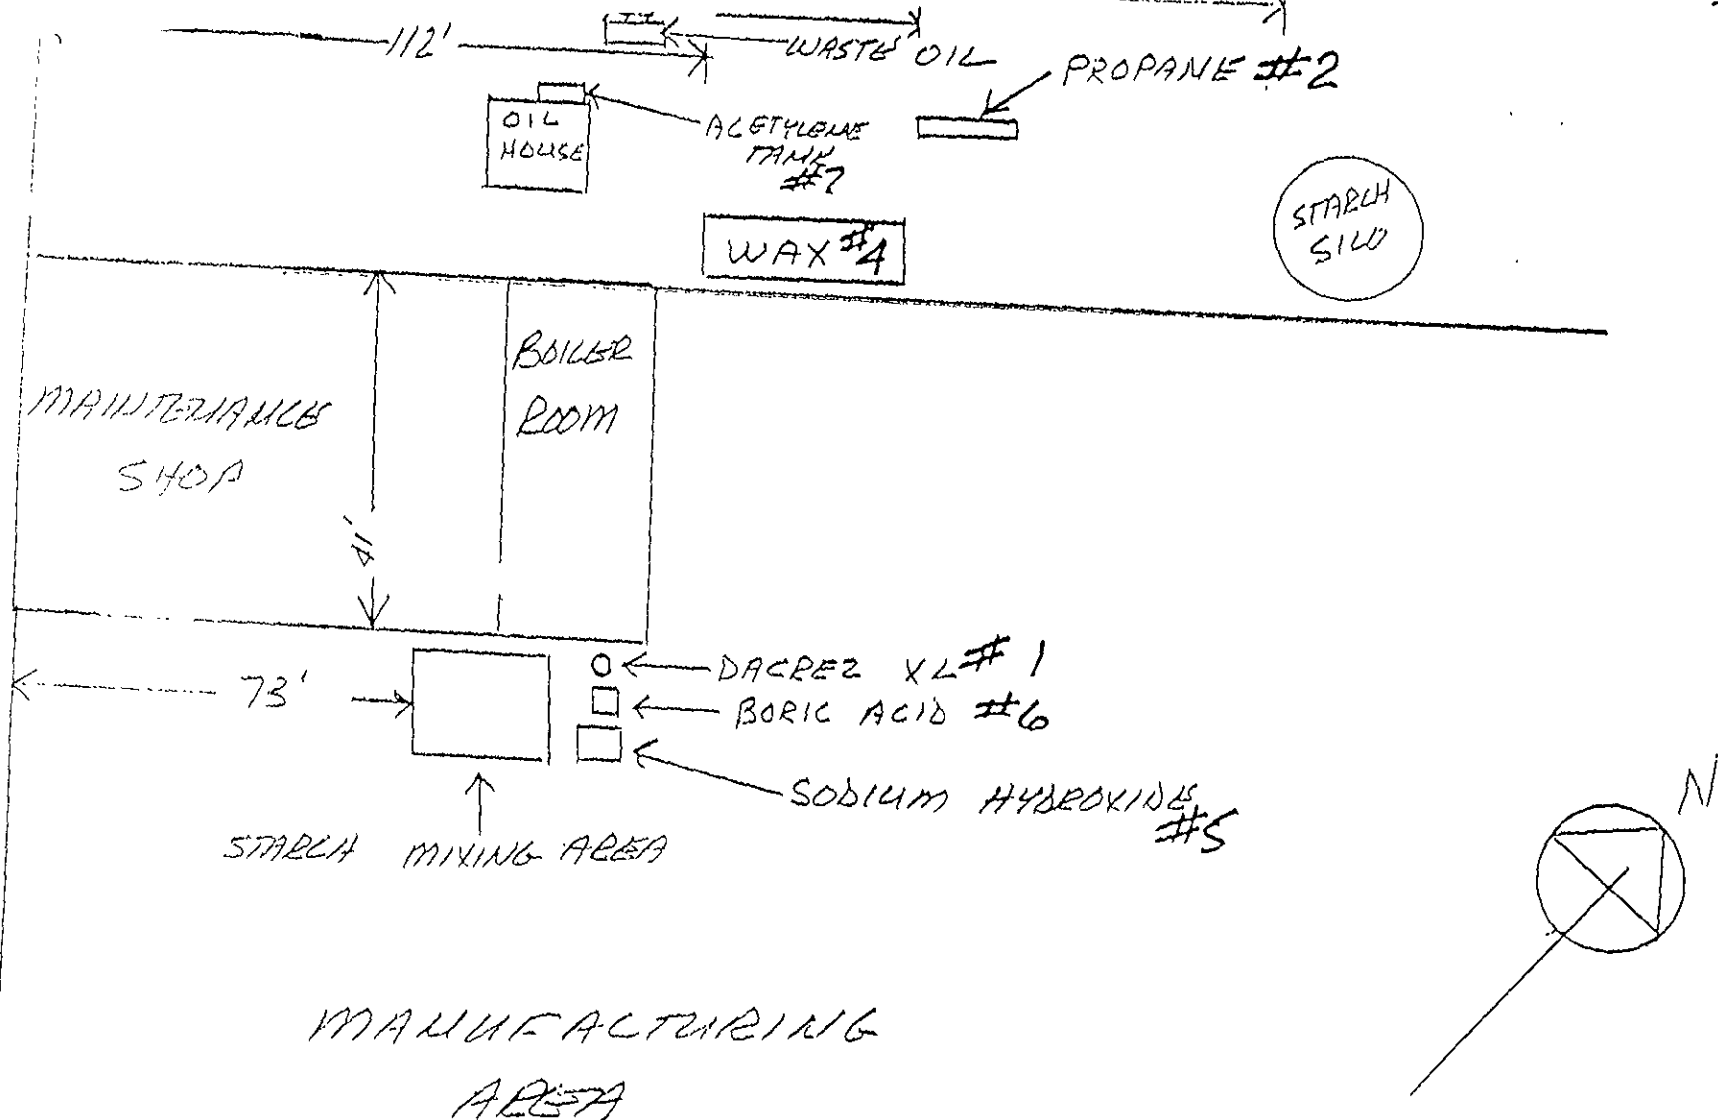 112'
WASTE OIL
PROPANE #2
OIL
HOUSE
ACETYLENE
TANK
#7
WAX #4
STARCH
SILO
BOILER
ROOM
MAINTENANCE
SHOP
41'
73'
DACREZ XL #1
BORIC ACID #6
SODIUM HYDROXIDE
#5
STARCH MIXING AREA
N
MANUFACTURING
AREA